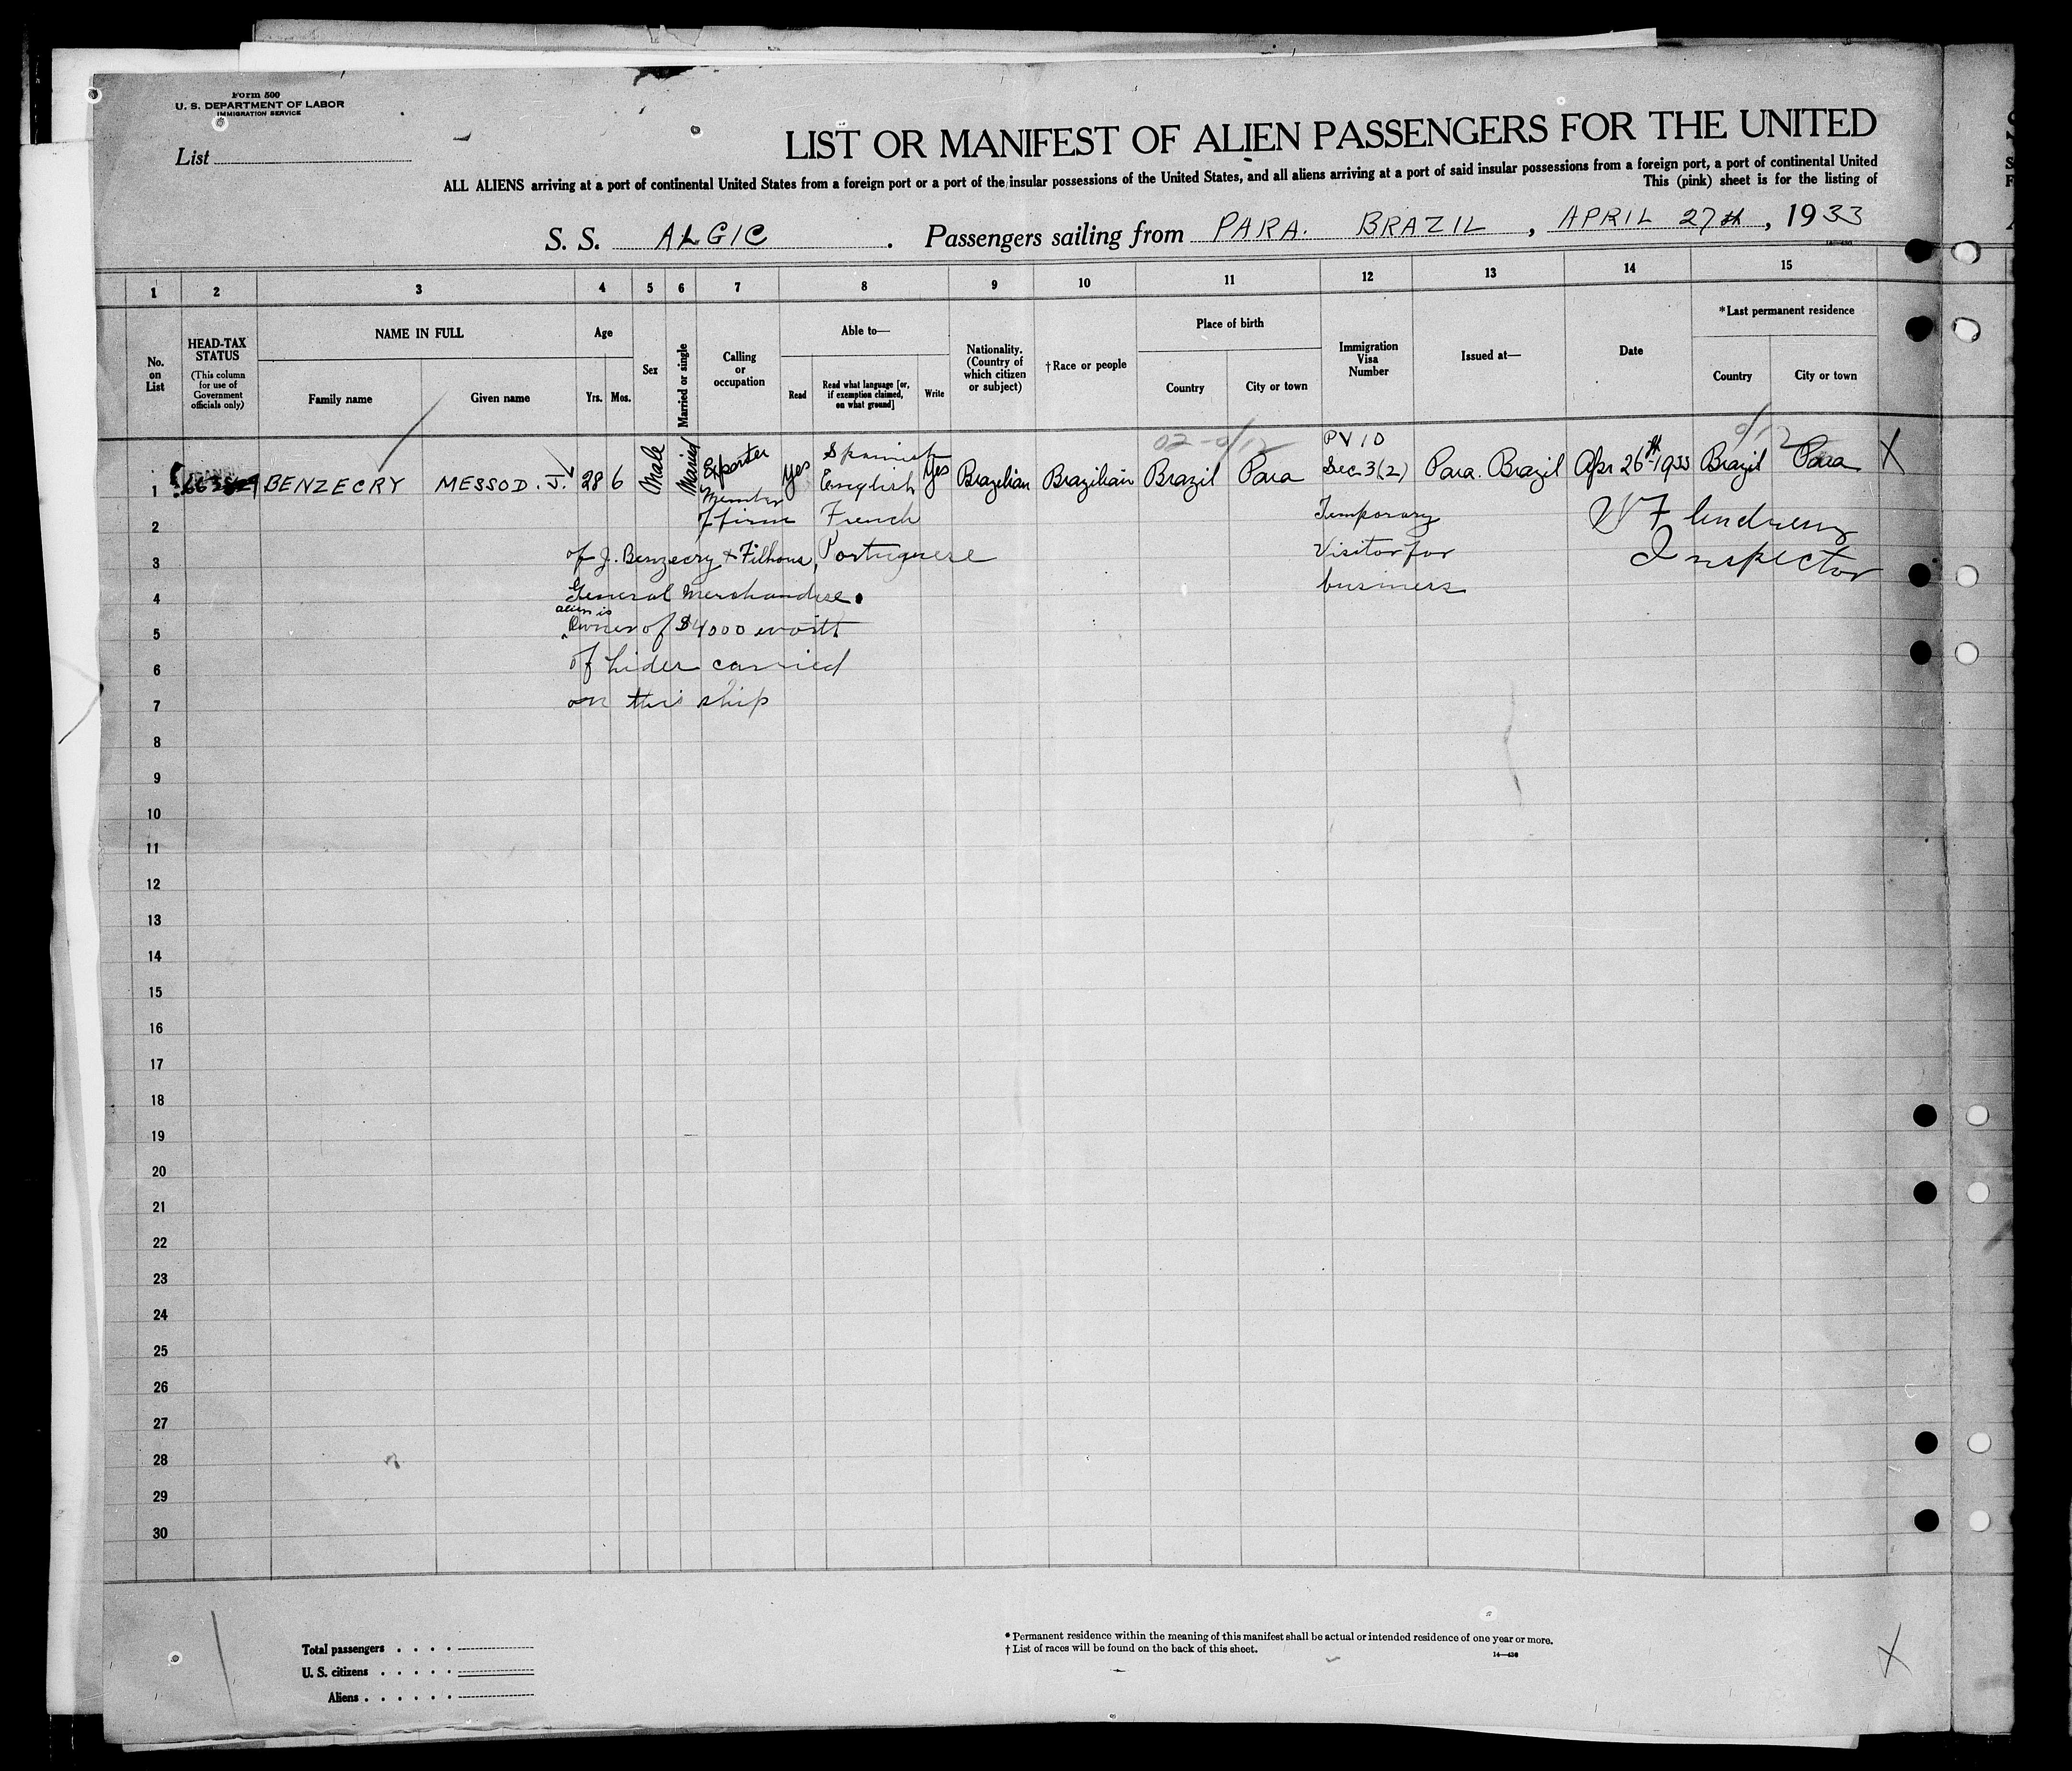 Form 500
U. S. DEPARTMENT OF LABOR
IMMIGRATION SERVICE
List
LIST OR MANIFEST OF ALIEN PASSENGERS FOR THE UNITED
ALL ALIENS arriving at a port of continental United States from a foreign port or a port of the insular possessions of the United States, and all aliens arriving at a port of said insular possessions from a foreign port, a port of continental United
This (pink) sheet is for the listing of
S. S. ALGIC . Passengers sailing from PARA. BRAZIL , APRIL 27th , 1933
1 2 3 4 5 6 7 8 9 10 11 12 13 14 15
No. on List
HEAD-TAX STATUS
(This column for use of Government officials only)
NAME IN FULL
Family name
Given name
Age
Yrs. Mos.
Sex
Married or single
Calling or occupation
Able to—
Read
Read what language [or, if exemption claimed, on what ground]
Write
Nationality. (Country of which citizen or subject)
†Race or people
Place of birth
Country
City or town
Immigration Visa Number
Issued at—
Date
*Last permanent residence
Country
City or town
1 BENZECRY MESSOD. J. 28 6 Male Married Exporter yes Spanish English yes Brazilian Brazilian Brazil Para PV 10 Sec. 3(2) Para. Brazil Apr 26th 1933 Brazil Para X
2 Member of firm French Temporary W F Andrews
3 of J. Benzecry & Filhous, Portuguese Visitor for Inspector
4 General Merchandise. business
alien is
5 Owner of $4000 worth
6 of hides carried
7 on this ship
8
9
10
11
12
13
14
15
16
17
18
19
20
21
22
23
24
25
26
27
28
29
30
Total passengers . . . .
U. S. citizens . . . . .
Aliens . . . . . .
* Permanent residence within the meaning of this manifest shall be actual or intended residence of one year or more.
† List of races will be found on the back of this sheet.
X